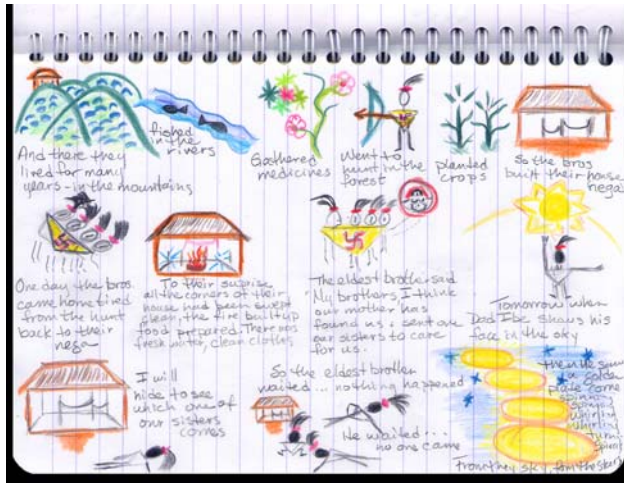 And there they
lived for many
years - in the mountains
fished
in the
rivers
Gathered
medicines
Went to
hunt in the
forest
planted
crops
So the bros
built their house
nega
One day the bros.
came home tired
from the hunt
back to their
nega
To their surprise
all the corners of their
house had been swept
clean, the fire built up
food prepared. There was
fresh water, clean clothes
The eldest brother said
My brothers I think
our mother has
found us & sent one
our sisters to care
for us.
Tomorrow when
Dad Ibe shows his
face in the sky
I will
hide to see
which one of
our sisters
comes
So the eldest brother
waited... nothing happened
He waited...
no one came
then he saw
a golden
plate come
spinning
whirling
whirling
From the sky, from the